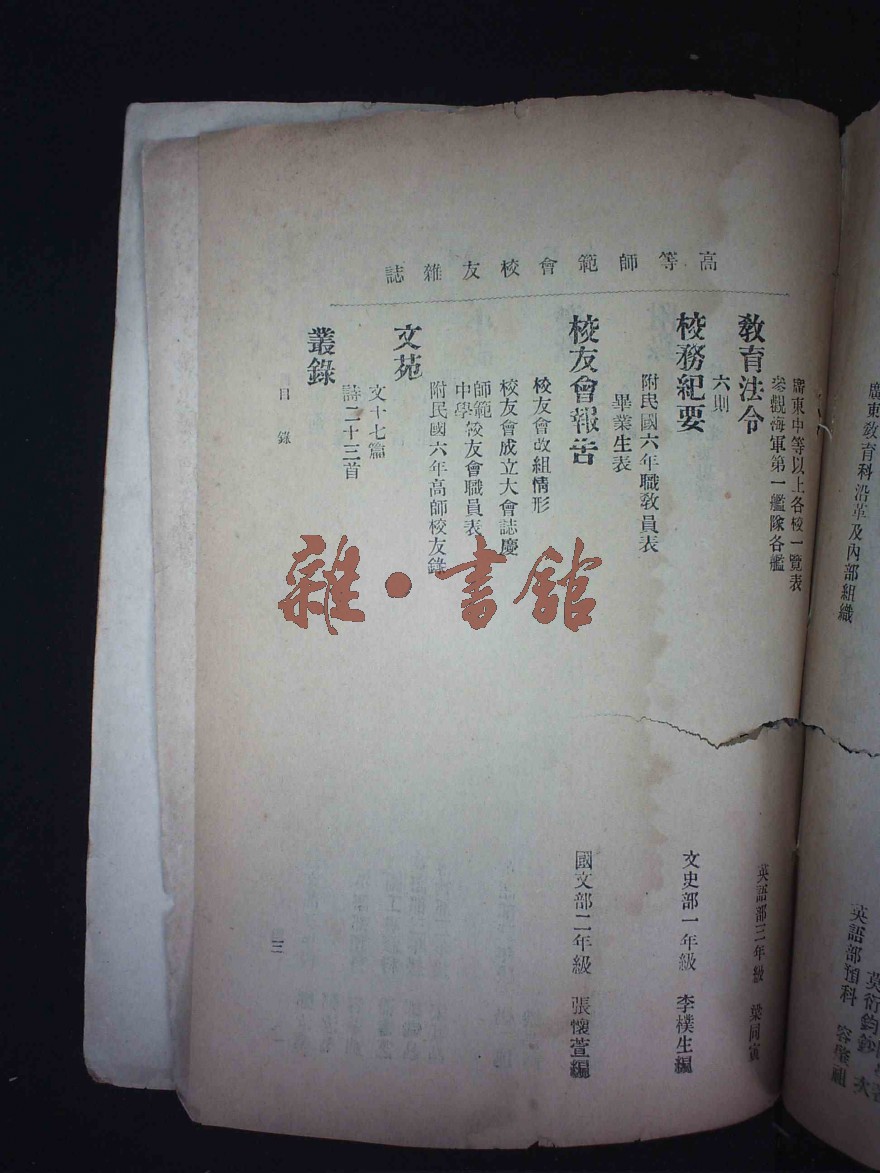 高等師範會校友雜誌
廣東教育科沿革及內部組織
英語部預科
廣東中等以上各校一覽表
參觀海軍第一艦隊各艦
英語部三年級 梁同寅
教育法令
六則
校務紀要
文史部一年級 李樸生編
附民國六年職教員表
畢業生表
校友會報告
國文部二年級 張懷萱編
校友會改組情形
校友會成立大會誌慶
師範校友會職員表
中學
附民國六年高師校友錄
文苑
文十七篇
詩二十三首
叢錄
目錄
三
雜·書館